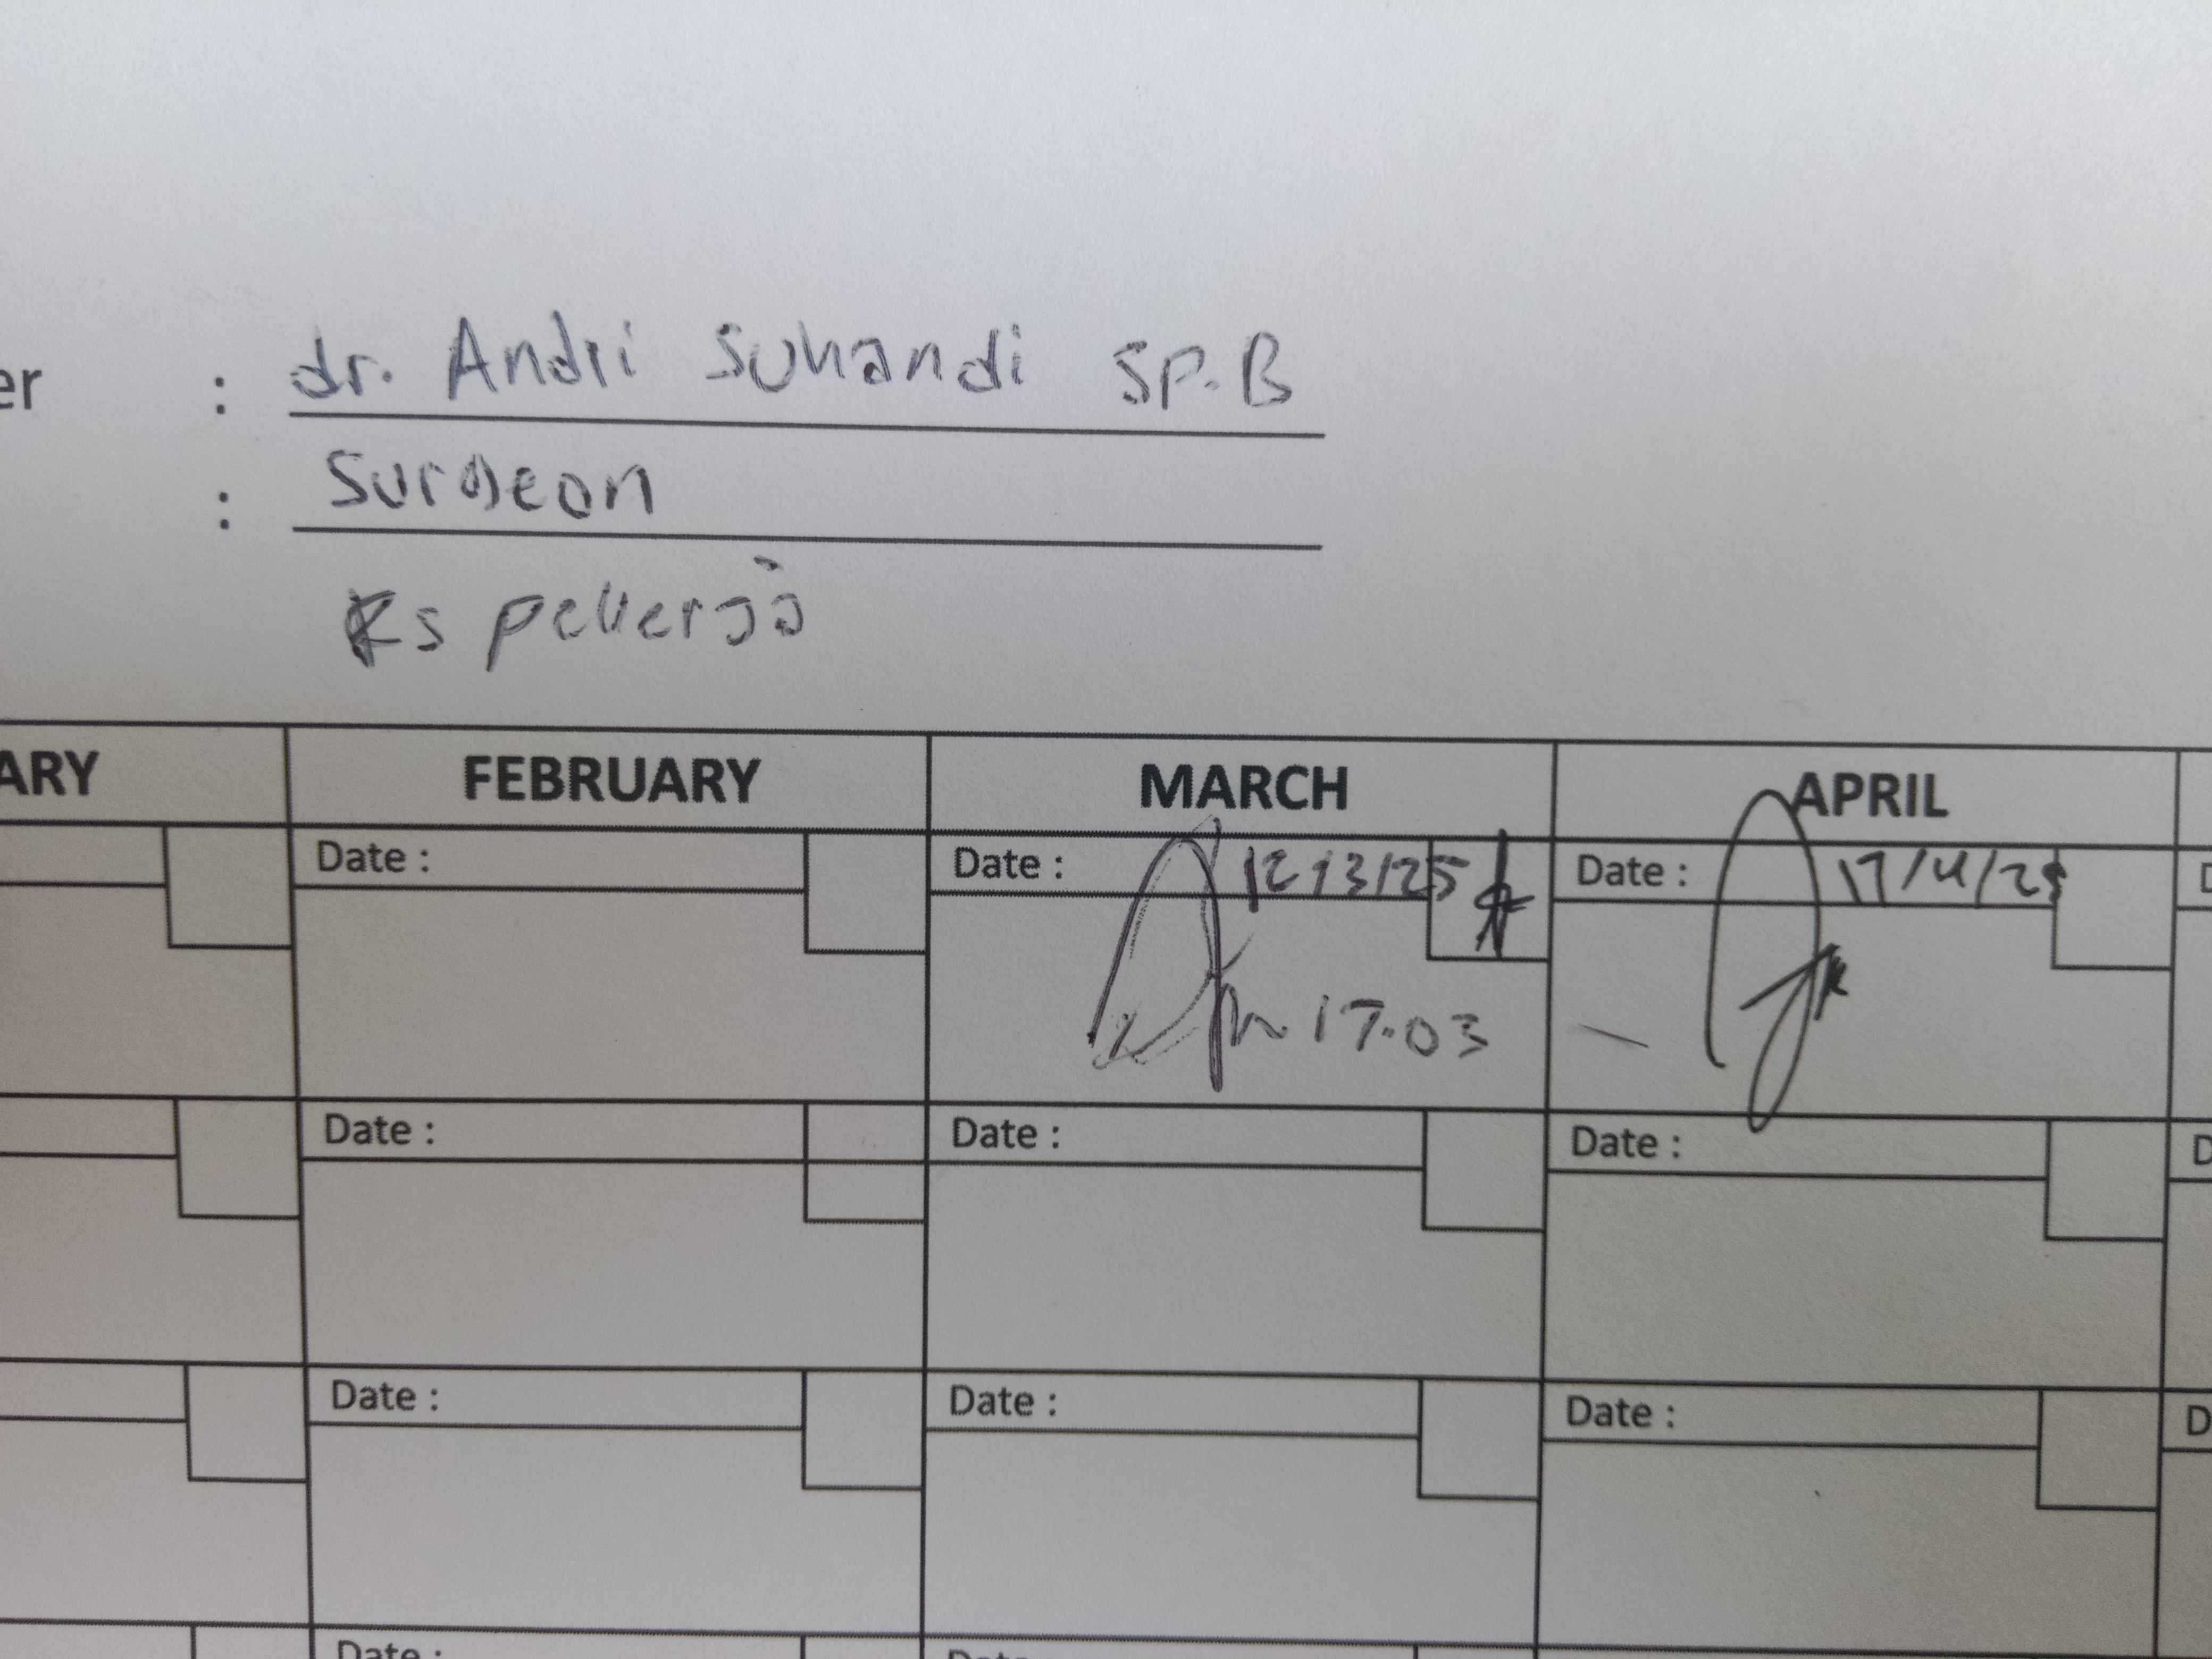 er : dr. Andri Suhandi SP.B
: Surgeon
Rs pekerja
ARY FEBRUARY MARCH APRIL
Date : Date : 12/3/25 Date : 17/4/25
17.03
Date : Date : Date :
Date : Date : Date :
Date : Date